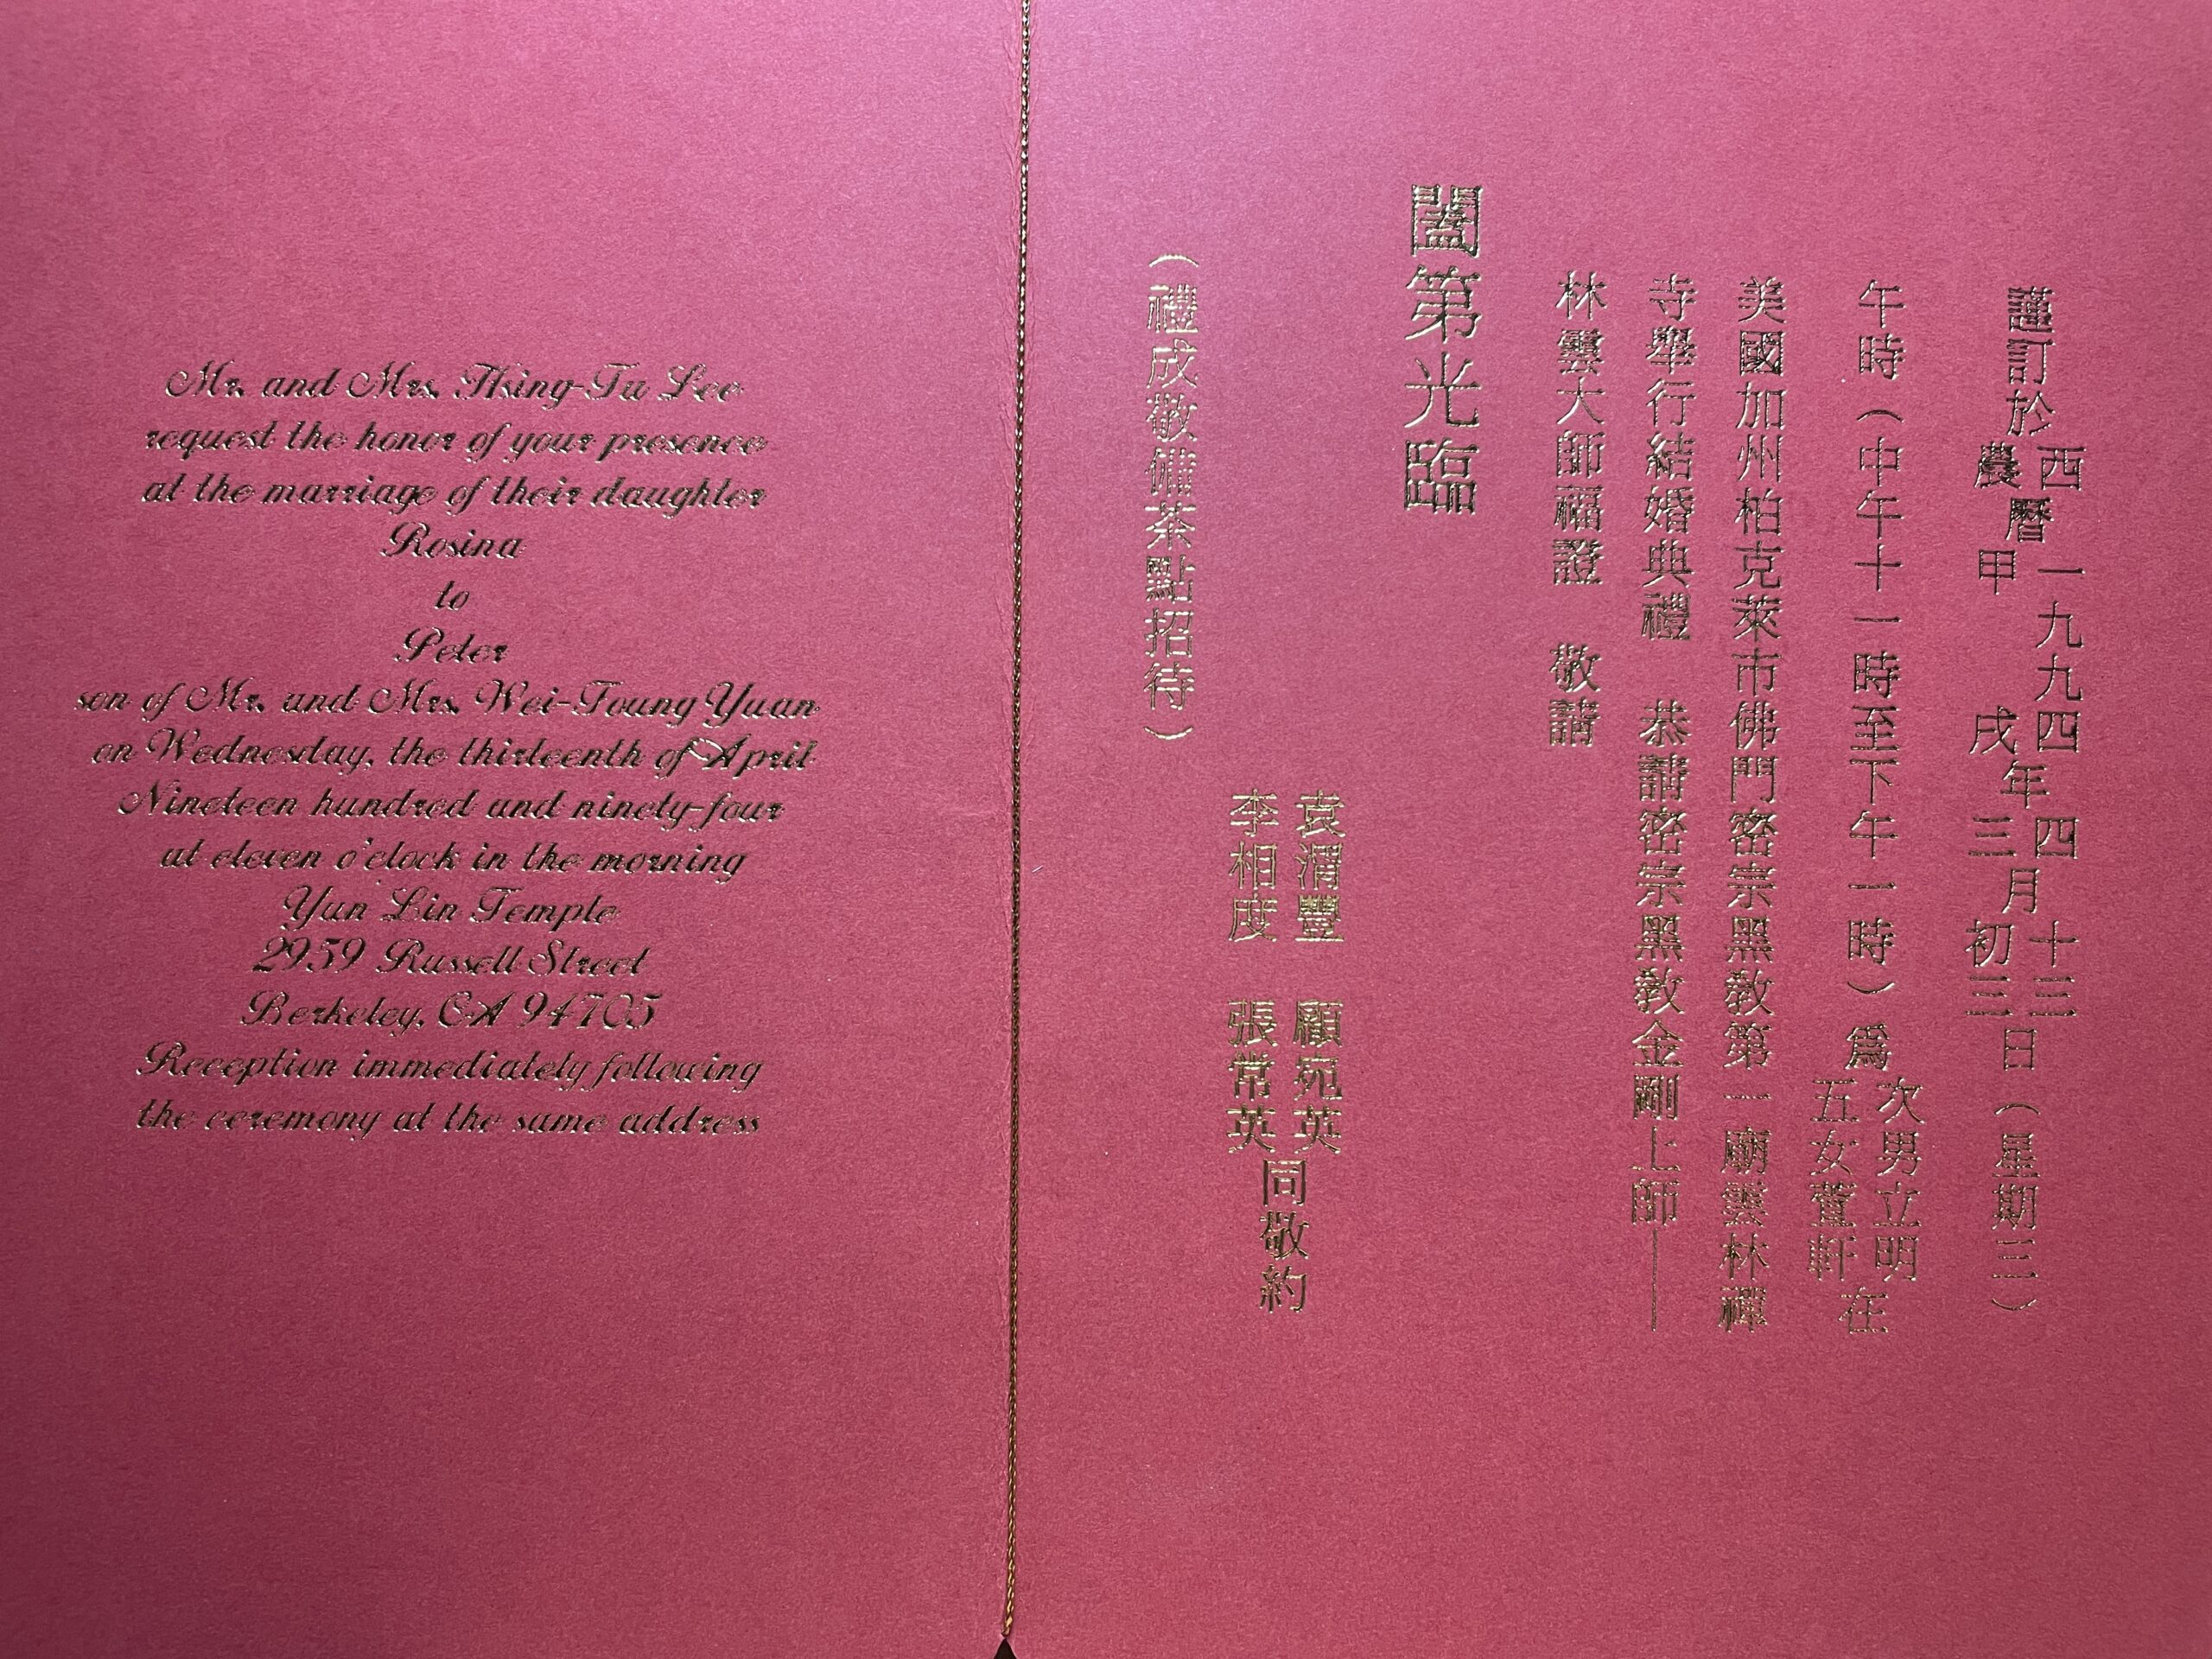 Mr. and Mrs. Hsing-Tu Lee
request the honor of your presence
at the marriage of their daughter
Rosina
to
Peter
son of Mr. and Mrs. Wei-Toung Yuan
on Wednesday, the thirteenth of April
Nineteen hundred and ninety-four
at eleven o'clock in the morning
Yun Lin Temple
2959 Russell Street
Berkeley, CA 94705
Reception immediately following
the ceremony at the same address
謹訂於西農曆一九九四甲戌年四三月十三初三日（星期三）
午時（中午十一時至下午一時）爲次男立明五女萱軒在
美國加州柏克萊市佛門密宗黑教第一廟雲林禪
寺舉行結婚典禮 恭請密宗黑教金剛上師——
林雲大師福證 敬請
闔第光臨
袁渭豐 顧宛英
李相度 張常英
同敬約
（禮成敬備茶點招待）